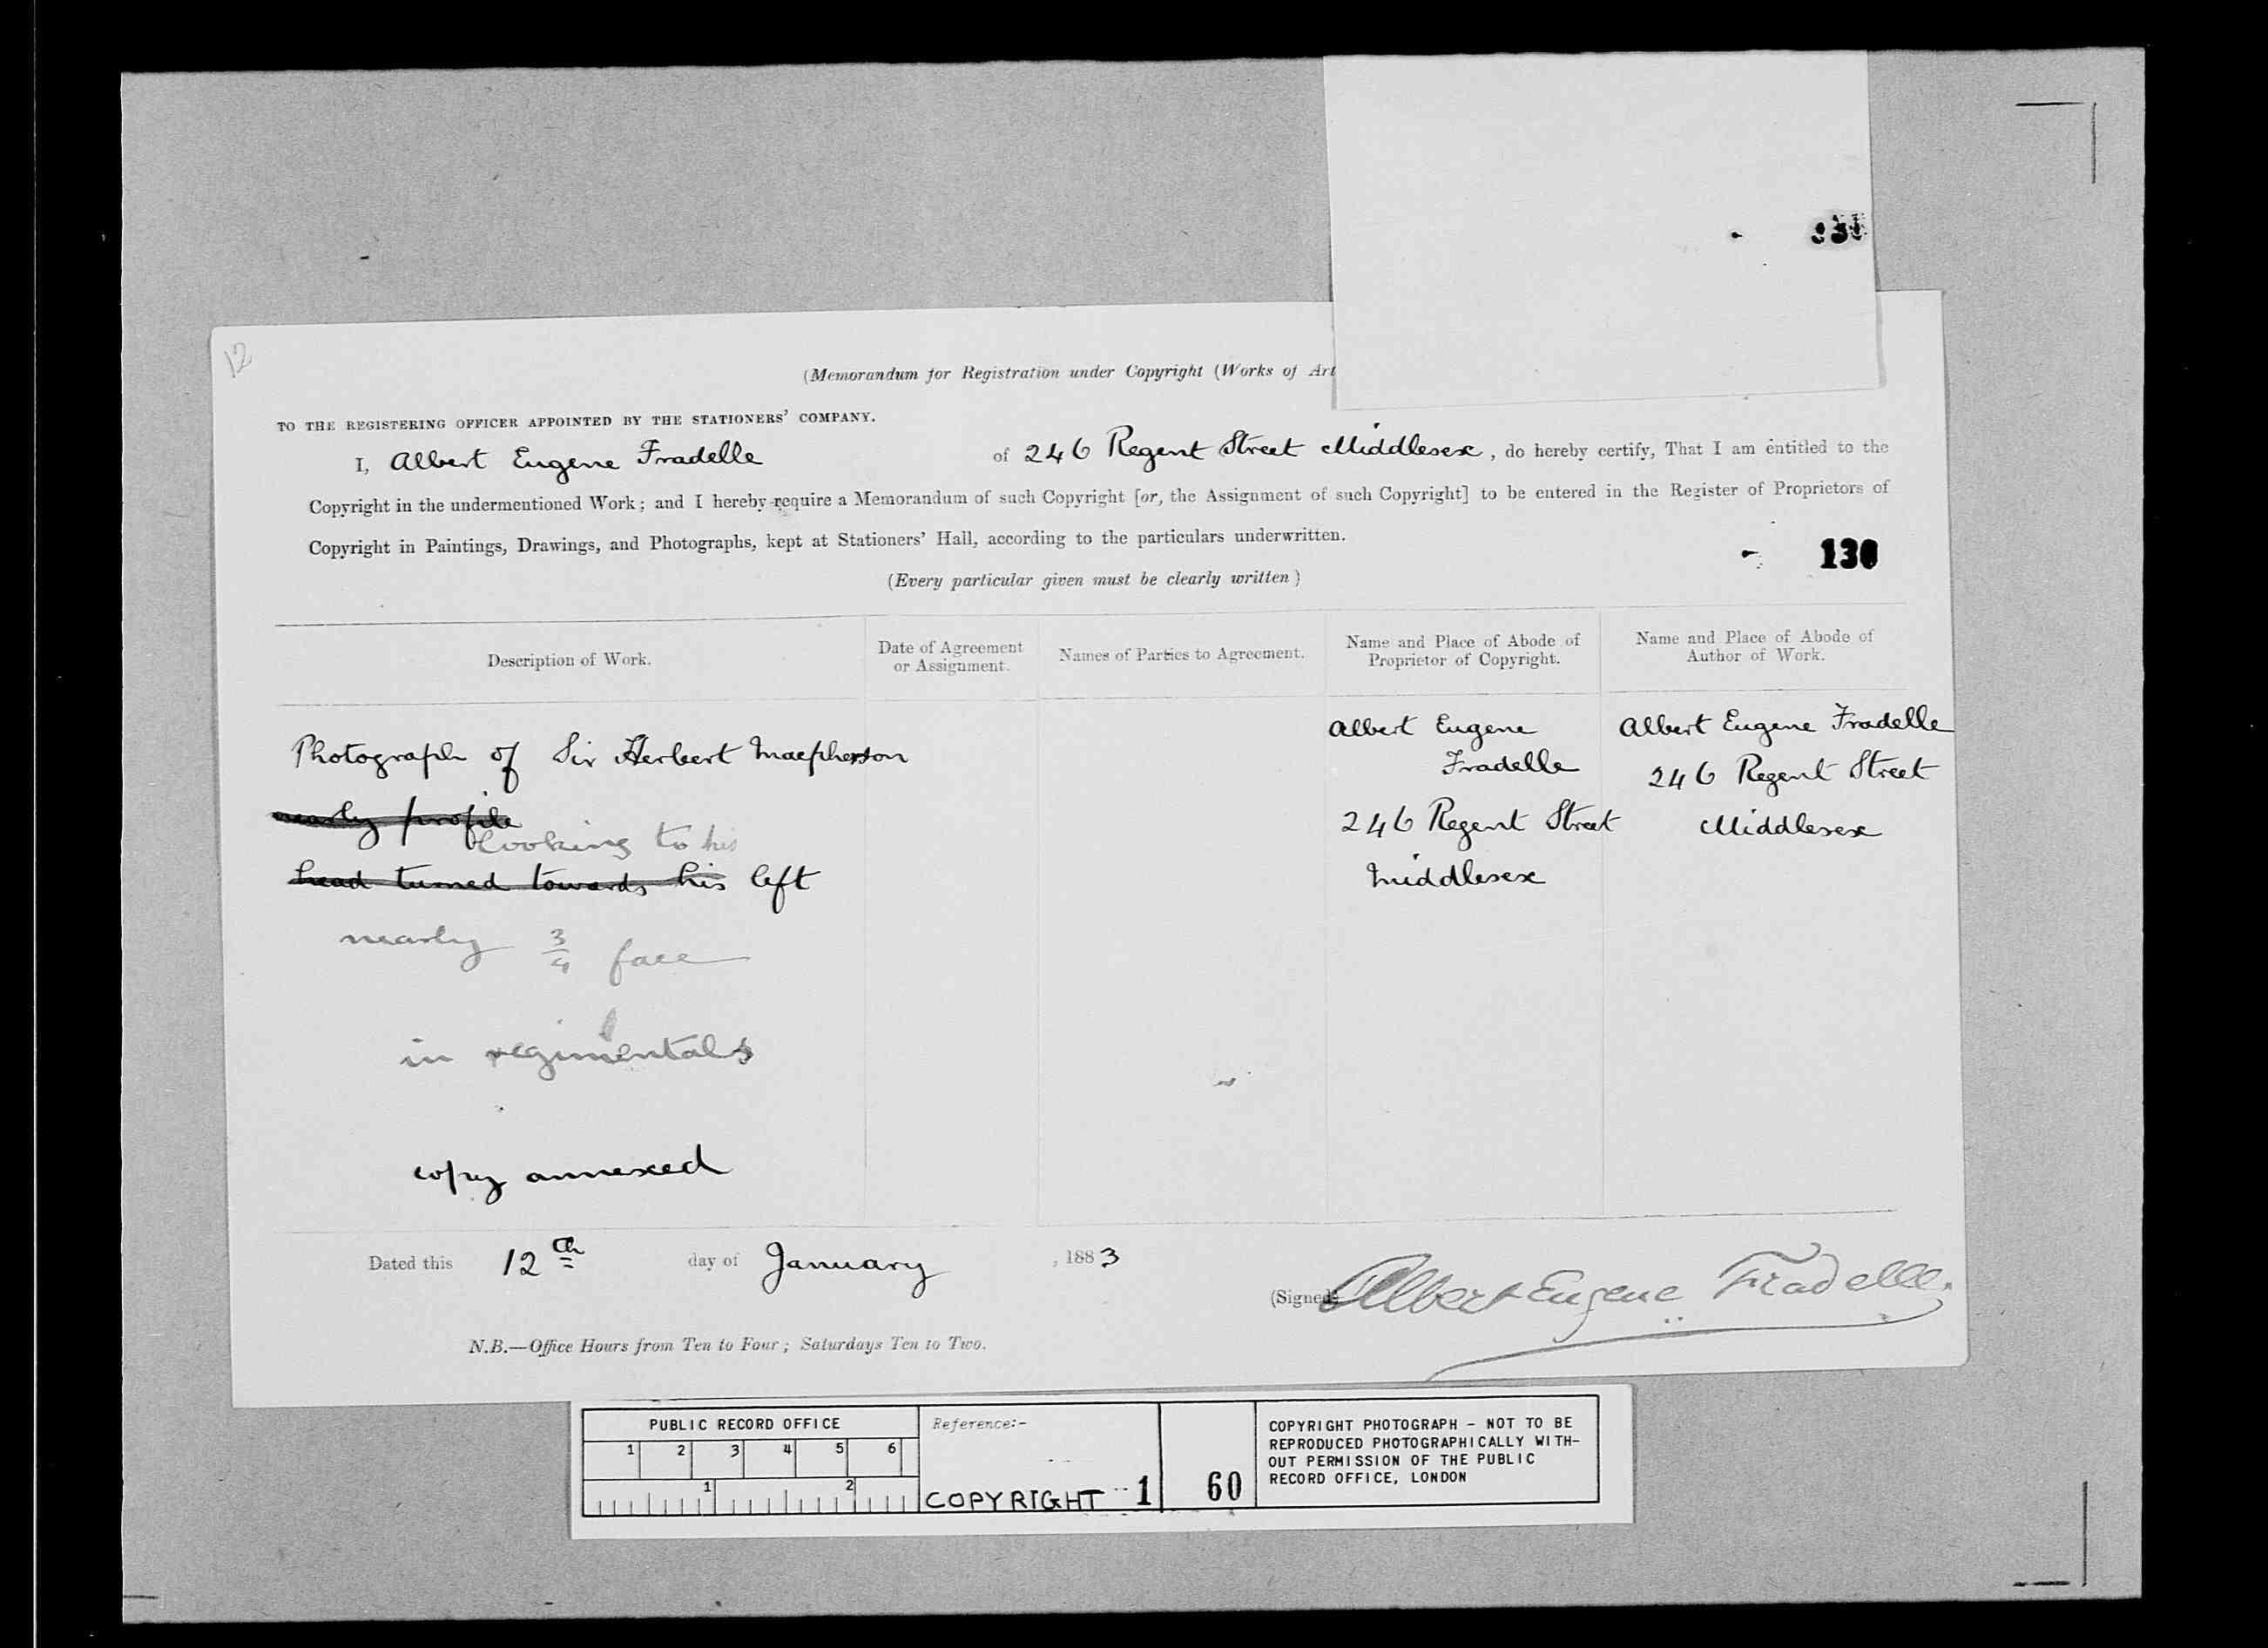 130
12
(Memorandum for Registration under Copyright (Works of Art
TO THE REGISTERING OFFICER APPOINTED BY THE STATIONERS' COMPANY.
I, Albert Eugene Fradelle of 246 Regent Street Middlesex, do hereby certify, That I am entitled to the
Copyright in the undermentioned Work; and I hereby require a Memorandum of such Copyright [or, the Assignment of such Copyright] to be entered in the Register of Proprietors of
Copyright in Paintings, Drawings, and Photographs, kept at Stationers' Hall, according to the particulars underwritten.
130
(Every particular given must be clearly written)
Description of Work.
Date of Agreement
or Assignment.
Names of Parties to Agreement.
Name and Place of Abode of
Proprietor of Copyright.
Name and Place of Abode of
Author of Work.
Photograph of Sir Herbert Macpherson
nearly profile
looking to his
head turned towards his left
nearly 3/4 face
in regimentals
copy annexed
Albert Eugene
Fradelle
246 Regent Street
Middlesex
Albert Eugene Fradelle
246 Regent Street
Middlesex
Dated this 12th day of January, 1883
(Signed) Albert Eugene Fradelle.
N.B.—Office Hours from Ten to Four; Saturdays Ten to Two.
PUBLIC RECORD OFFICE
1 2 3 4 5 6
1 2
Reference:-
COPYRIGHT 1 60
COPYRIGHT PHOTOGRAPH - NOT TO BE
REPRODUCED PHOTOGRAPHICALLY WITH-
OUT PERMISSION OF THE PUBLIC
RECORD OFFICE, LONDON